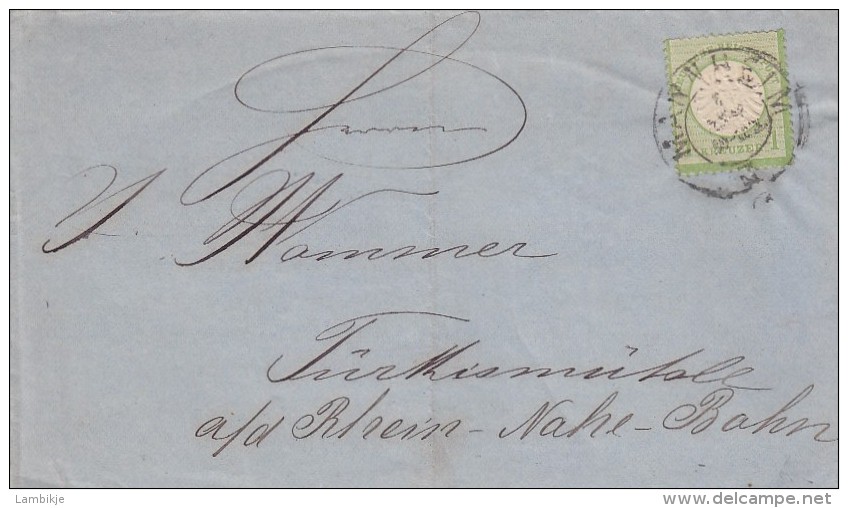 Herrn
N. Wommer
Türkismühle
a/d Rhein-Nahe-Bahn
MANNHEIM
KREUZER 1
Lambikje
www.delcampe.net